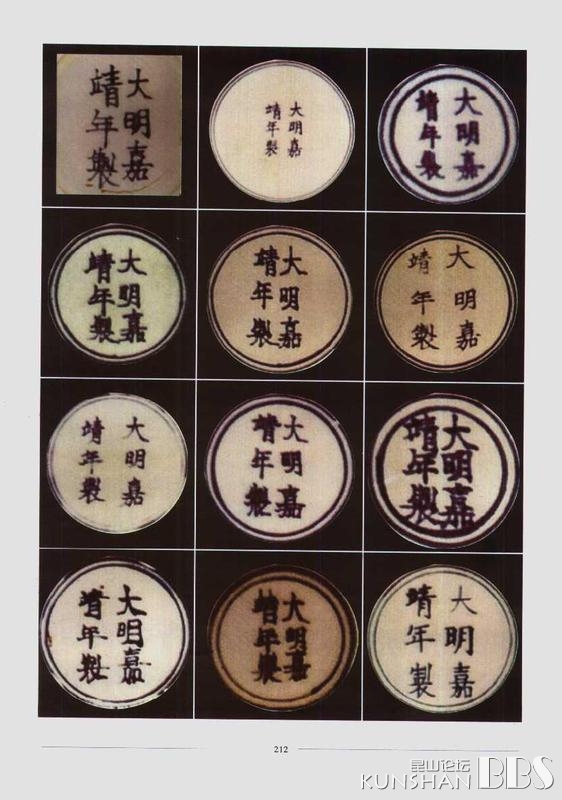 大明嘉
靖年製
大明嘉
靖年製
大明嘉
靖年製
大明嘉
靖年製
大明嘉
靖年製
大明嘉
靖年製
大明嘉
靖年製
大明嘉
靖年製
大明嘉
靖年製
大明嘉
靖年製
大明嘉
靖年製
大明嘉
靖年製
212
昆山论坛
KUNSHAN BBS